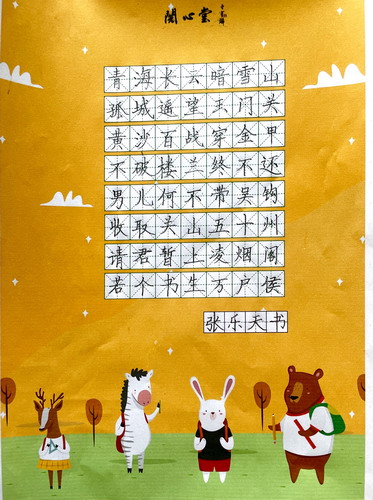 開心堂
青海长云暗雪山
孤城遥望玉门关
黄沙百战穿金甲
不破楼兰终不还
男儿何不带吴钩
收取关山五十州
请君暂上凌烟阁
若个书生万户侯
张乐天书